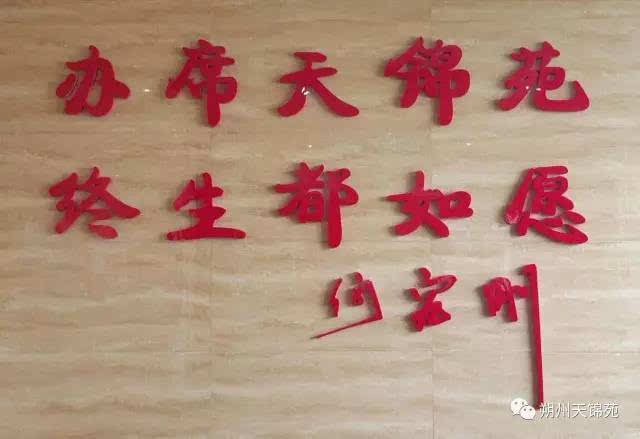 办席天锦苑
终生都如愿
何宏刚
朔州天锦苑